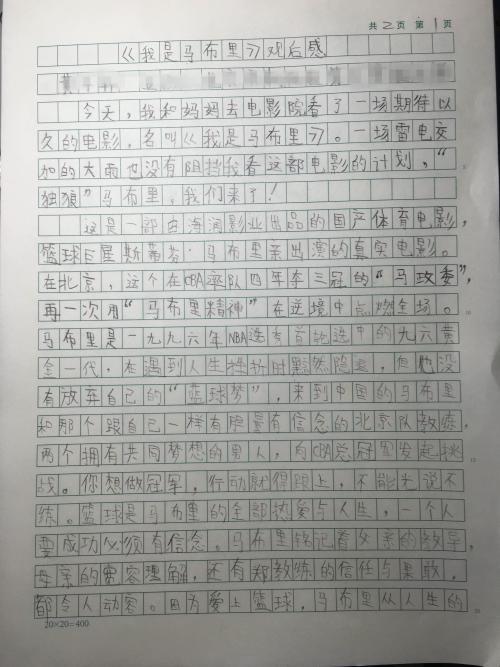 共2页 第1页
《我是马布里》观后感
今天，我和妈妈去电影院看了一场期待以
久的电影，名叫《我是马布里》。一场雷电交
加的大雨也没有阻挡我看这部电影的计划，“
独狼”马布里，我们来了！
这是一部由海润影业出品的国产体育电影，
篮球巨星斯蒂芬·马布里亲出演的真实电影。
在北京，这个在CBA率队四年夺三冠的“马政委”，
再一次用“马布里精神”在逆境中点燃全场。
马布里是一九九六年NBA选秀首轮选中的九六黄
金一代，在遇到人生挫折时黯然隐退，但他没
有放弃自己的“篮球梦”，来到中国的马布里
和那个跟自己一样有胆量有信念的北京队教练，
两个拥有共同梦想的男人，向CBA总冠军发起挑
战。你想做冠军，行动就得跟上，不能光说不
练。篮球是马布里的全部热爱与人生，一个人
要成功必须有信念。马布里铭记着父亲的教导，
母亲的宽容理解，还有郑教练的信任与果敢，
都令人动容。因为爱上篮球，马布里从人生的
20×20=400